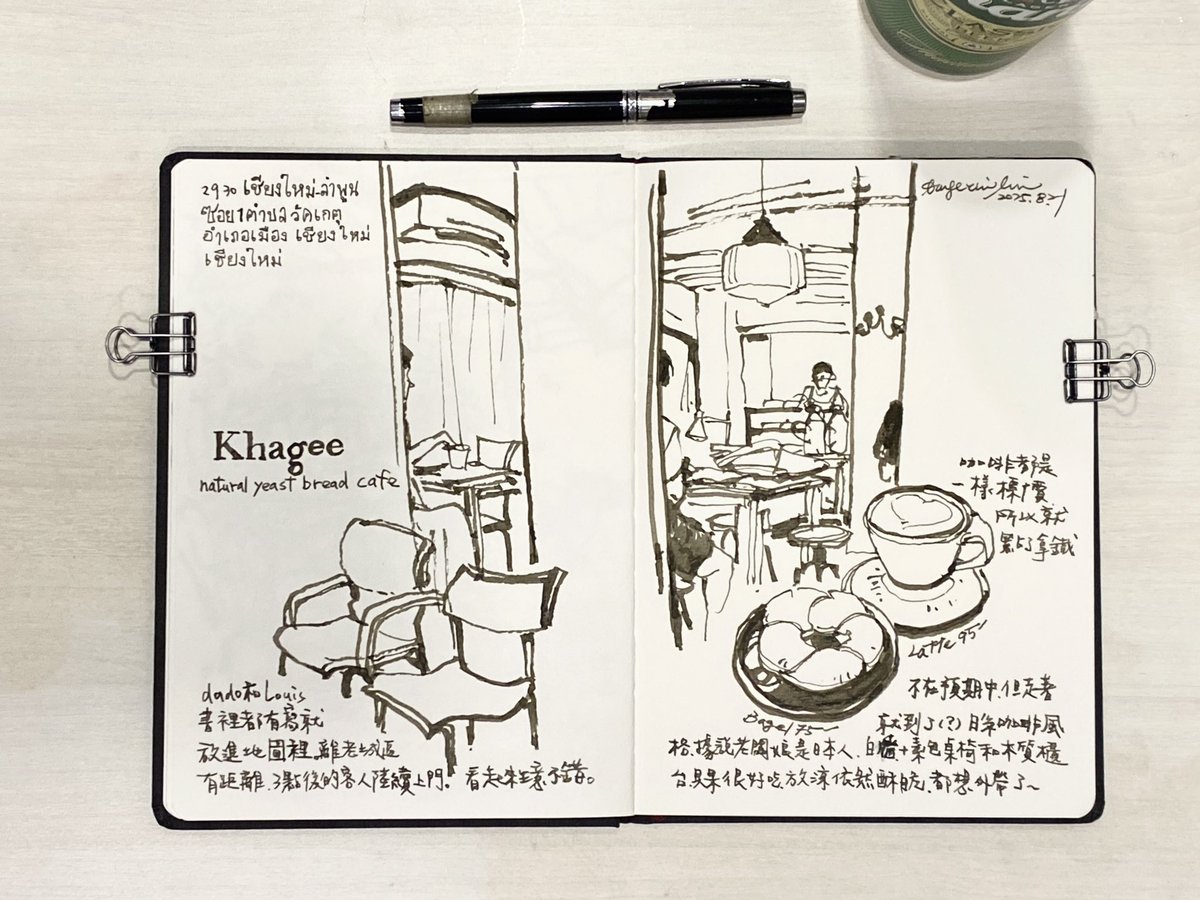 29 30 เชียงใหม่-ลำพูน
ซอย 1 ตำบล วัดเกตุ
อำเภอเมือง เชียงใหม่
เชียงใหม่
Khagee
natural yeast bread cafe
dado和Louis
書裡都有寫就
放進地圖裡.離老城區
有距離.3點後的客人陸續上門。看起來生意不錯。
2025.8.21
咖啡都是
一樣標價
所以就
點了拿鐵
Latte 95~
Bagel 75~
不在預期中.但走著
就到了(?)日系咖啡風
格.據說老闆娘是日本人.白牆+素色桌椅和木質櫃
台.貝果很好吃.放涼依然酥脆.都想外帶了~